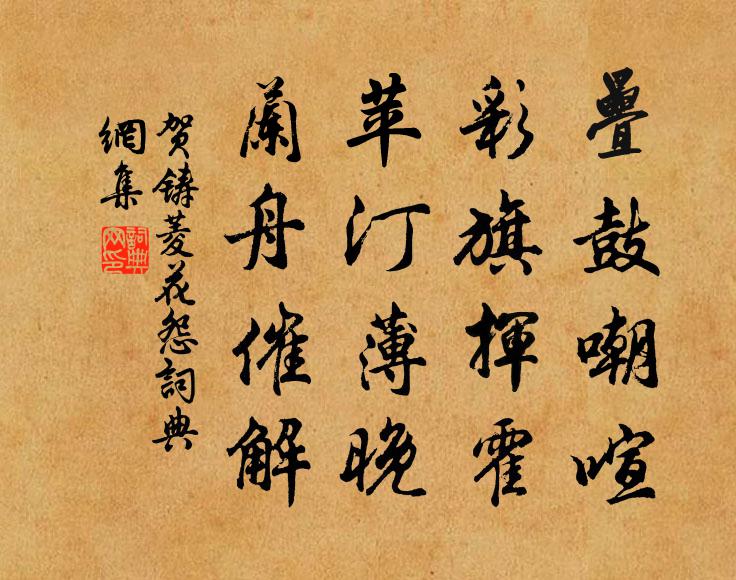 疊鼓嘲喧
彩旗揮霍
苹汀薄晚
蘭舟催解
贺鑄菱花怨詞典
網集
詞典網印